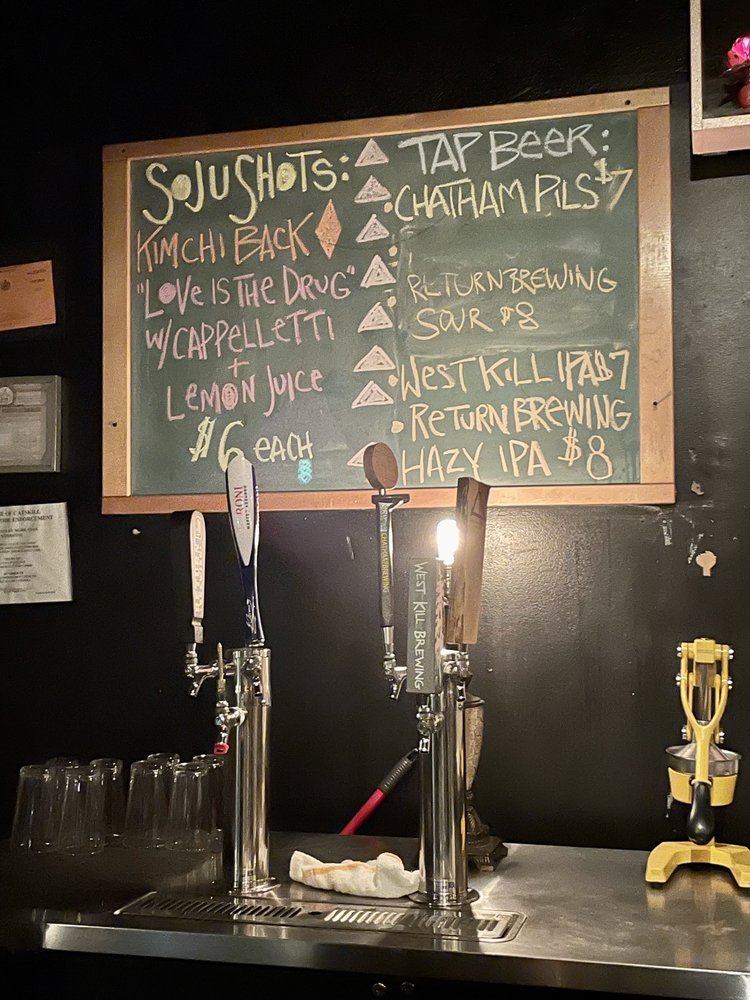 SOJU SHOTS:
KIMCHI BACK
"LOVE IS THE DRUG"
W/ CAPPELLETTI
+
LEMON JUICE
$6 EACH
TAP BEER:
CHATHAM PILS $7
RETURN BREWING
SOUR $8
WEST KILL IPA $7
RETURN BREWING
HAZY IPA $8
CHATHAM BREWING
WEST KILL BREWING